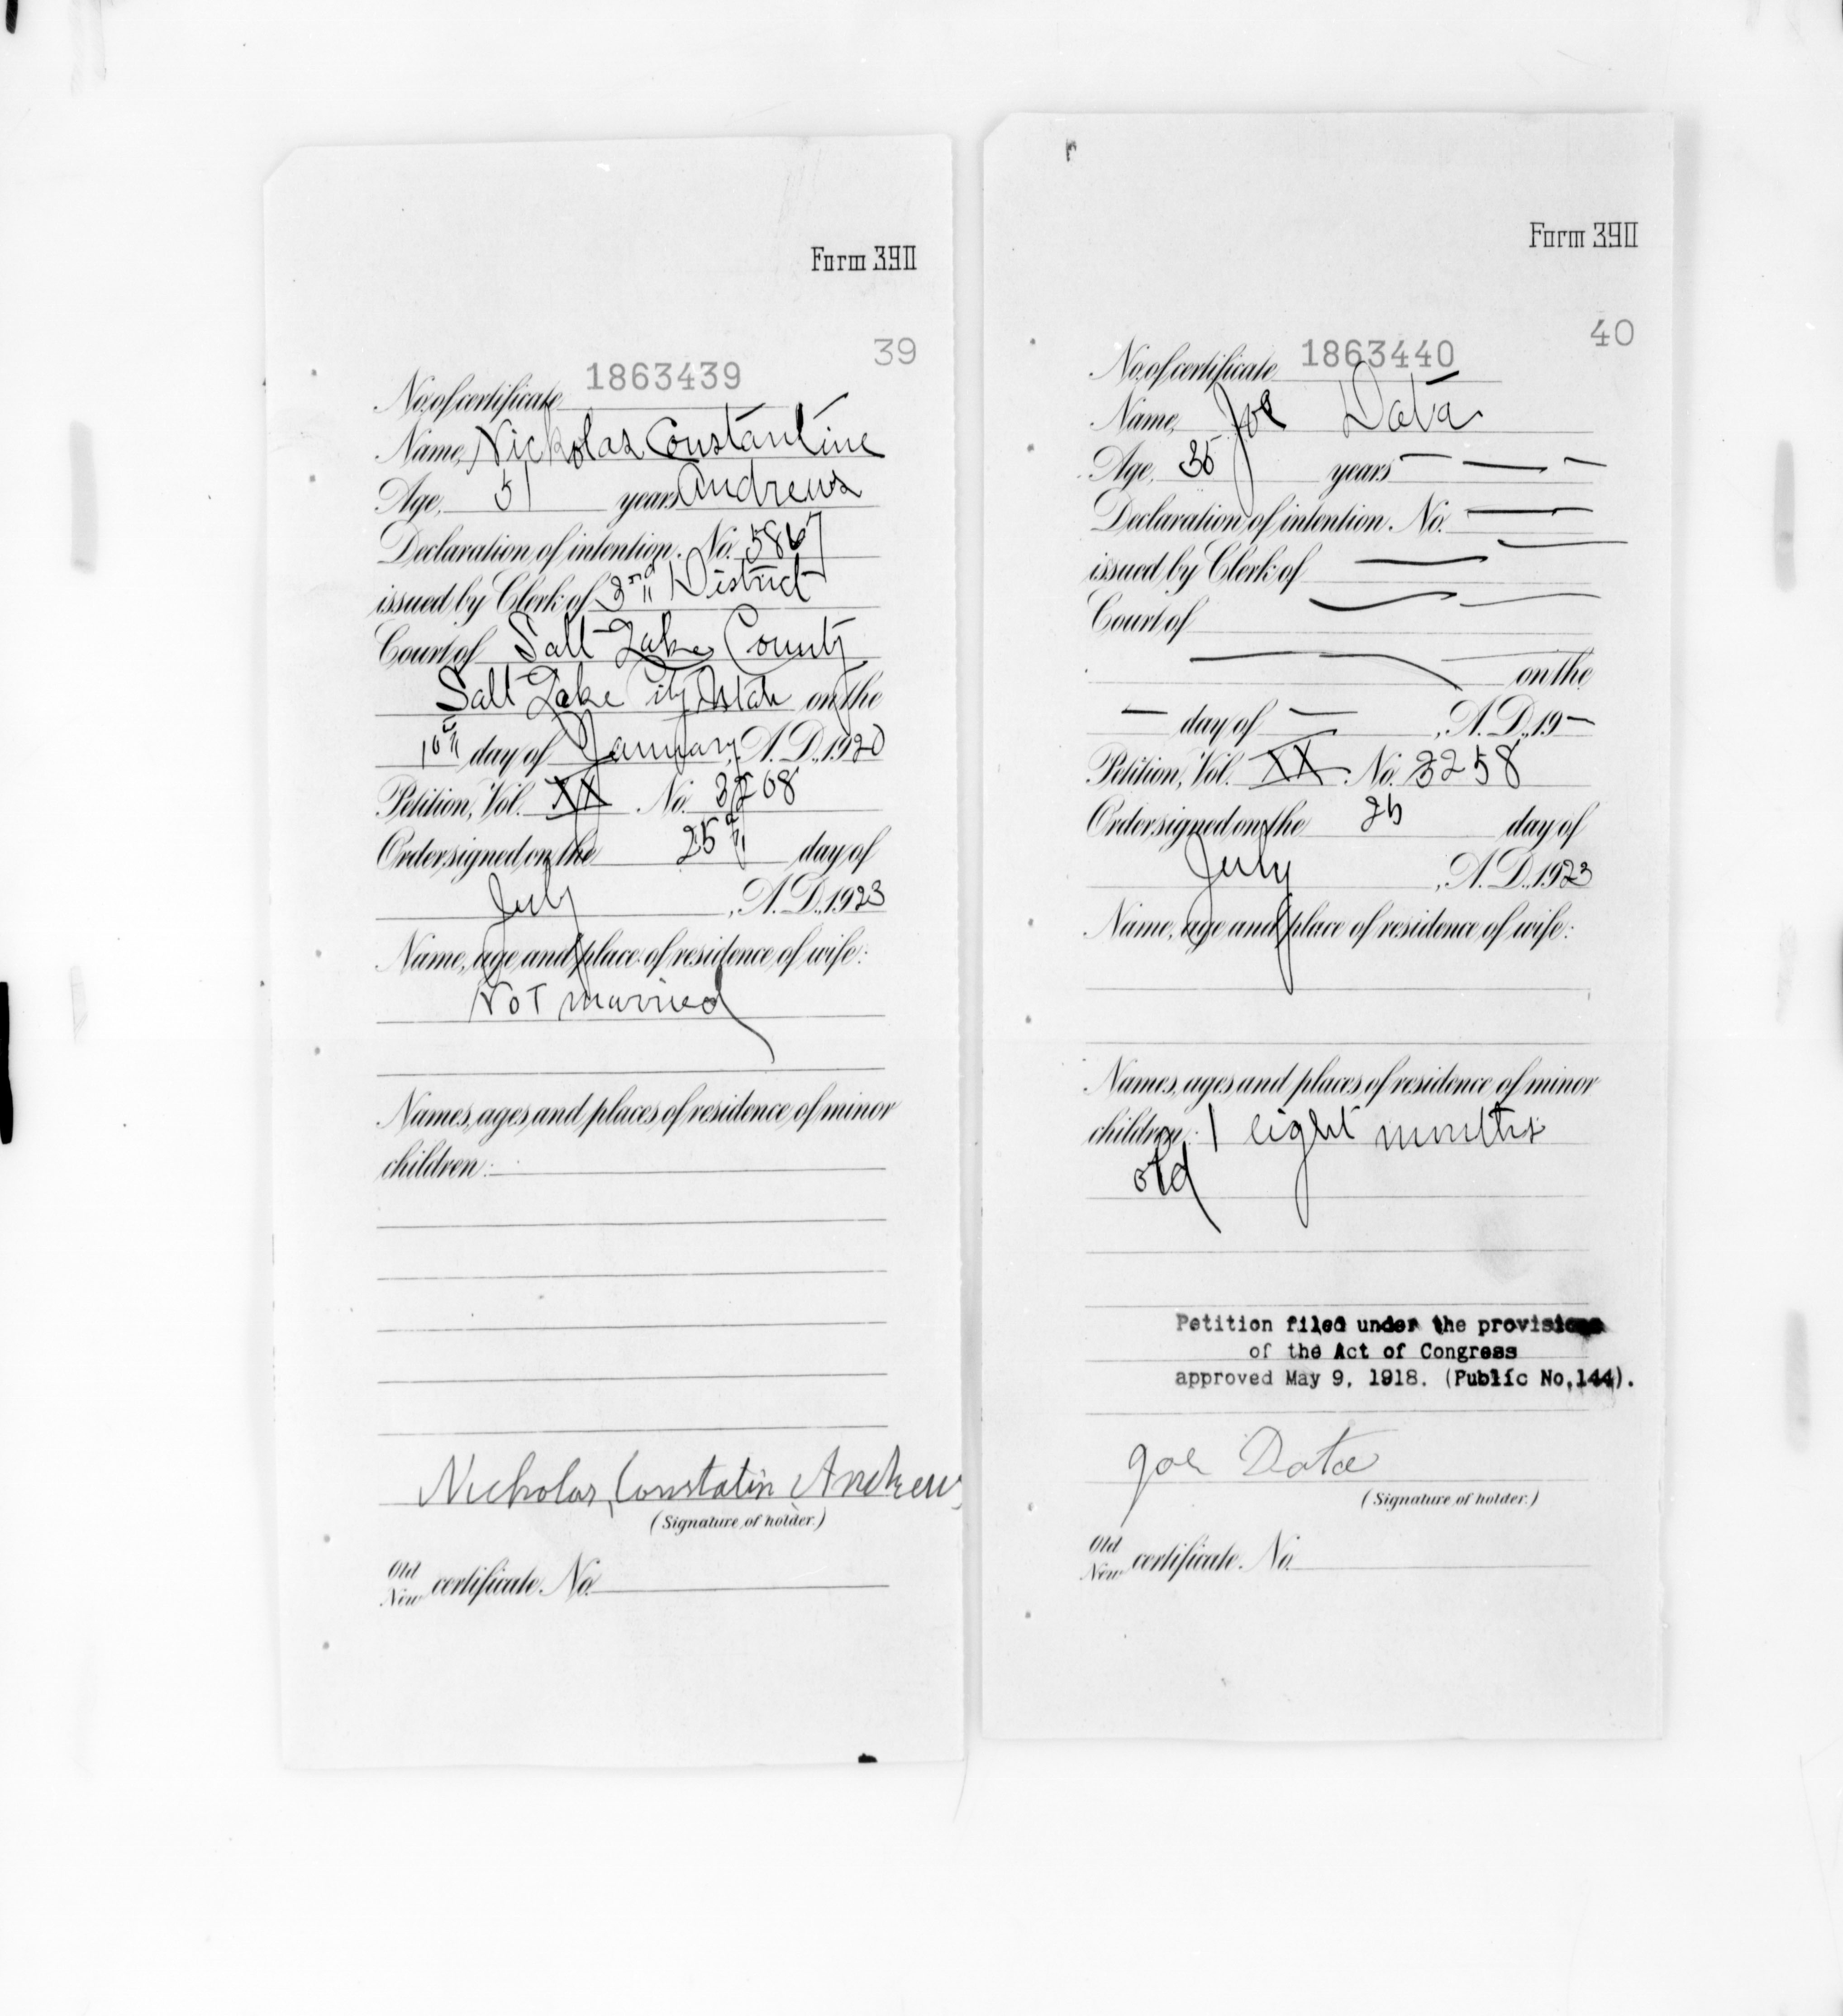 Form 390
39
No. of certificate 1863439
Name, Nickolas Constantine
Age, 51 years Andrews
Declaration of intention. No. 5867
issued by Clerk of 3rd District
Court of Salt Lake County
Salt Lake City Utah on the
10th day of January, A. D., 1920
Petition, Vol. XX No. 3208
Order signed on the 25th day of
July, A. D., 1923
Name, age and place of residence of wife:
Not married
Names, ages and places of residence of minor
children:
Nicholas Constatin Andrews
(Signature of holder.)
Old
New certificate. No.
Form 390
40
No. of certificate 1863440
Name, Joe Data
Age, 35 years — — —
Declaration of intention. No. —
issued by Clerk of — —
Court of — —
— — on the
— day of —, A. D., 19—
Petition, Vol. XX No. 3258
Order signed on the 25 day of
July, A. D., 1923
Name, age and place of residence of wife:
Names, ages and places of residence of minor
children: 1 eight months
old
Petition filed under the provisions
of the Act of Congress
approved May 9, 1918. (Public No. 144).
Joe Data
(Signature of holder.)
Old
New certificate. No.